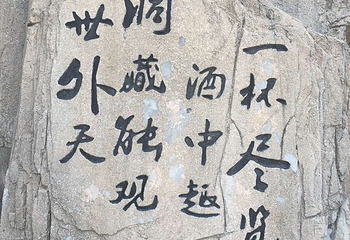 一杯尽览
酒中趣
洞能观
世外天